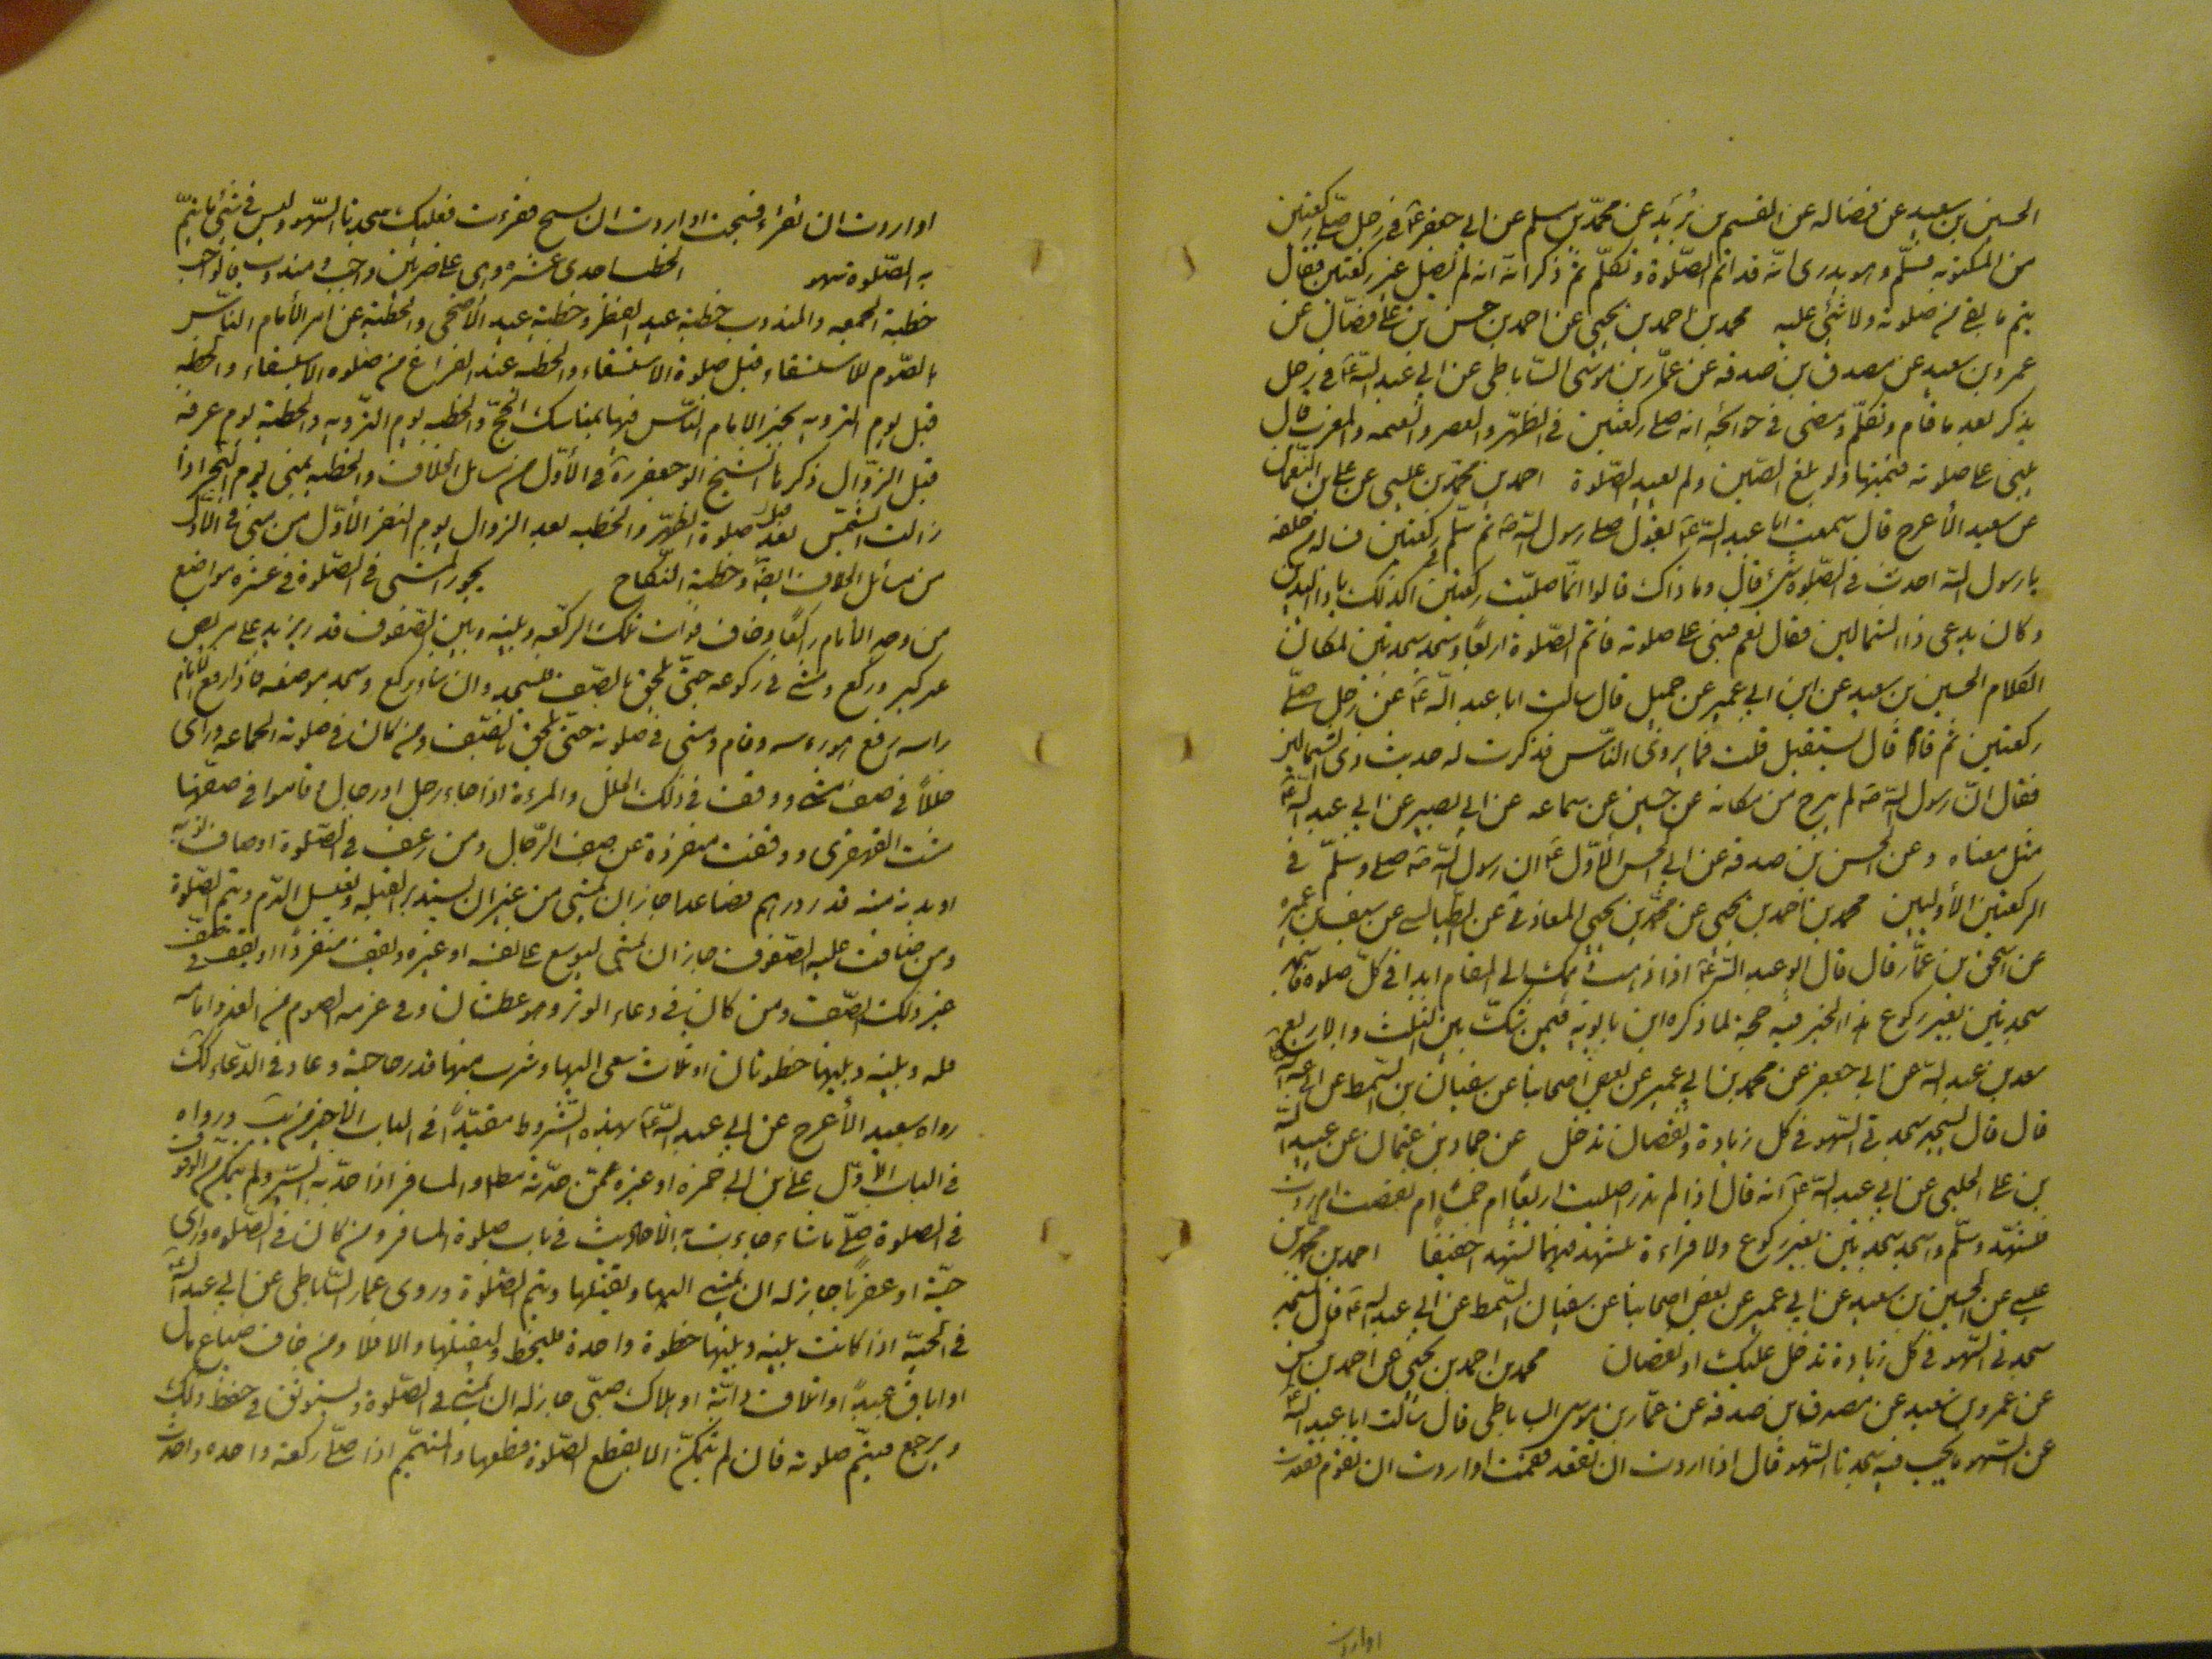 الحسين بن سعيد عن فضاله عن القسم بن بُرَيد عن محمّد بن مسلم عن ابي جعفر ع في رجل صلّى ركعتين
من المكتوبه فسلّم وهو يدرى انّه قد اتم الصّلوة وتكلّم ثمّ ذكر انّه انه لم يُصل غير ركعتين فقال
يتم ما بقي من صلوته ولا شئ عليه محمد بن احمد بن يحيى عن احمد بن حسن بن علي فضّال عن
عمرو بن سعيد عن مصدق بن صدقه عن عمّار بن موسى السّاباطى عن ابي عبد اللّه ع في رجل
يذكر بعد ما قام وتكلّم ومضى في حوائجه انه صلى ركعتين في الظّهر والعصر والعتمه والمغرب قال
يبنى على صلوته فيتمّها ولو بلغ الصّين ولم يعيد الصّلوة احمد بن محمّد بن عليسى عن علي بن النّعمان
عن سعيد الأعرج قال سمعت ابا عبد اللّه ع يقول صلى رسول اللّه ص ثم سلّم في ركعتين فساله من خلفه
يا رسول اللّه احدث في الصّلوة شئ قال وما ذاك قالوا انّما صلّيت ركعتين اكذلك يا ذا اليدين
وكان يدعى ذا الشمالين فقال نعم فبنى على صلوته فاتم الصّلوة اربعًا وسجد سجدتين لمكان
الكلام الحسين بن سعيد عن ابن ابي عمير عن جميل قال سالت ابا عبد اللّه ع عن رجل صلّى
ركعتين ثم قام قال يستقبل قلت فما يروى النّاس فذكرت له حديث ذى الشمالين
فقال انّ رسول اللّه ص لم يبرح من مكانه عن حسين عن سماعه عن ابي بصير عن ابي عبد اللّه ع
مثل معناه وعن الحسن بن صدقه عن ابي الحسن الأوّل ع ان رسول اللّه ص صلى وسلّم في
الركعتين الأوليين محمد بن احمد بن يحيى عن محمّد بن يحيى المعاذى عن الطيالسى عن سيف بن عميره
عن اسحق بن عمّار قال قال ابو عبد اللّه ع اذا ذهب وهمك الى التمام ابدا في كلّ صلوة فاسجد
سجدتين بغير ركوع هذا الخبر فيه حجة لما ذكره ابن بابويه فيمن شكّ بين الثلث والاربع
سعد بن عبد اللّه عن ابي جعفر عن محمد بن ابي عمير عن بعض اصحابنا عن سفيان بن السّمط عن ابي عبد اللّه
قال قال تسجد سجدتي السّهو في كل زيادة ونقصان تدخل عن حماد بن عثمان عن عبيد اللّه
بن على الحلبى عن ابي عبد اللّه ع انه قال اذا لم تدر صليت اربعًا ام خمسًا ام نقصت ام زدت
فتشهّد وسلّم واسجد سجدتين بغير ركوع ولا قراءة تتشهد فيهما تشهّدا خفيفًا احمد بن محمّد بن
عيسى عن الحسين بن سعيد عن ابي عمير عن بعض اصحابنا عن سفيان السّمط عن ابي عبد اللّه ع قال تسجد
سجدتي السّهو في كل زيادة تدخل عليك او نقصان محمد بن احمد بن يحيى عن احمد بن حسن
عن عمرو بن سعيد عن مصدق بن صدقه عن عمّار بن موسى الساباطى قال سألت ابا عبد اللّه ع
عن السّهو ما يجب فيه سجدتا السّهو قال اذا اردت ان تقعد فقمت او اردت ان تقوم فقعدت
او اردت
او اردت ان تقراء فسبحت او اردت ان تسبح فقرءت فعليك سجدتا السّهو وليس في شئ ما يتمّ
به الصّلوة سهو الخطب احدى عشره وهى على ضربين واجب ومندوب فالواجب
خطبة الجمعه والمندوب خطبة عيد الفطر وخطبة عيد الأضحى والخطبة عن امر الأمام النّاس
بالصّوم للاستسقاء قبل صلوة الاستسقاء والخطبه عند الفراغ من صلوه الاستسقاء والخطبه
قبل يوم التروية يخبر الامام النّاس فيها بمناسك الحجّ والخطبه يوم التّرويه والخطبة يوم عرفه
قبل الزوّال ذكرها الشيخ ابو جعفر ره في الأوّل من مسائل الخلاف والخطبه بمنى يوم النّحر اذا
زالت الشّمس بعد صلوة الظّهر والخطبه بعد الزوال يوم النفر الأوّل من منى في الأوّل
من مسائل الخلاف ايضًا وخطبة النّكاح يجوز المشى في الصّلوة في عشره مواضع
من وجد الأمام راكعًا وخاف فوات تلك الركعه وبينه وبين الصّفوف قدر يزيد على مربض
عنز كبر وركع ومشى في ركوعه حتىّ يلحق بالصّف فيسجد وان شاء ركع وسجد موضعه فاذا رفع الأمام
راسه رفع هو راسه وقام ومشى في صلوته حتّى يلحق بالصّف ومن كان في صلوته الجماعه وراى
خللاً في صف مشى ووقف في ذلك الخلل والمرءة اذا جاء رجل او رجال وقاموا في صفّها
مشت القهقرى ووقفت منفردة عن صف الرّجال ومن رعف في الصّلوة او صاف ثوبه
او بدنه منه قدر درهم فصاعدا جاز ان يمشى من غير ان يستدبر القبله ويغسل الدّم ويتم الصّلوة
ومن ضاقت عليه الصّفوف جاز ان يمشى ليوسع على نفسه او غيره ويقف منفردًا او يقف في
غير ذلك الصّف ومن كان في دعاء الوتر وهو عطشان وفي عزمه الصوم من الغد وامامه
قله وبينه وبينها خطوتان او ثلاث سعى اليها وشرب منها قدر حاجته وعاد في الدّعاء ذلك
رواه سعيد الأعرج عن ابي عبد اللّه ع بهذه الشّروط مقيّدًا في الباب الأخير من يب ورواه
في الباب الأوّل علي بن ابي حمزه او غيره عمّن حدّثه مطلقا والمسافر اذا جدّ به السّير ولم يتمكن من الوقوف
في الصلوة صلّى ماشاء جاءت به الأحاديث في باب صلوة المسافر ومن كان في الصّلوه وراى
حيّة او عقربًا جاز له ان يمشى اليها ويقتلها ويتم الصّلوة وروى عمار السّاباطى عن ابي عبد اللّه ع
في الحيّه اذا كانت بينه وبينها خطوة واحدة فليخط وليقتلها والا فلا ومن خاف ضياع مال
او اباق عبيدٍ او اتلاف دابّة او هلاك صبّى جاز له ان يمشى في الصّلوة ويستوثق في حفظ ذلك
ويرجع فيتمّ صلوته فان لم يتمكّن الا بقطع الصّلوة قطعها والمتيمّم اذا صلّى ركعة واحده واحدث